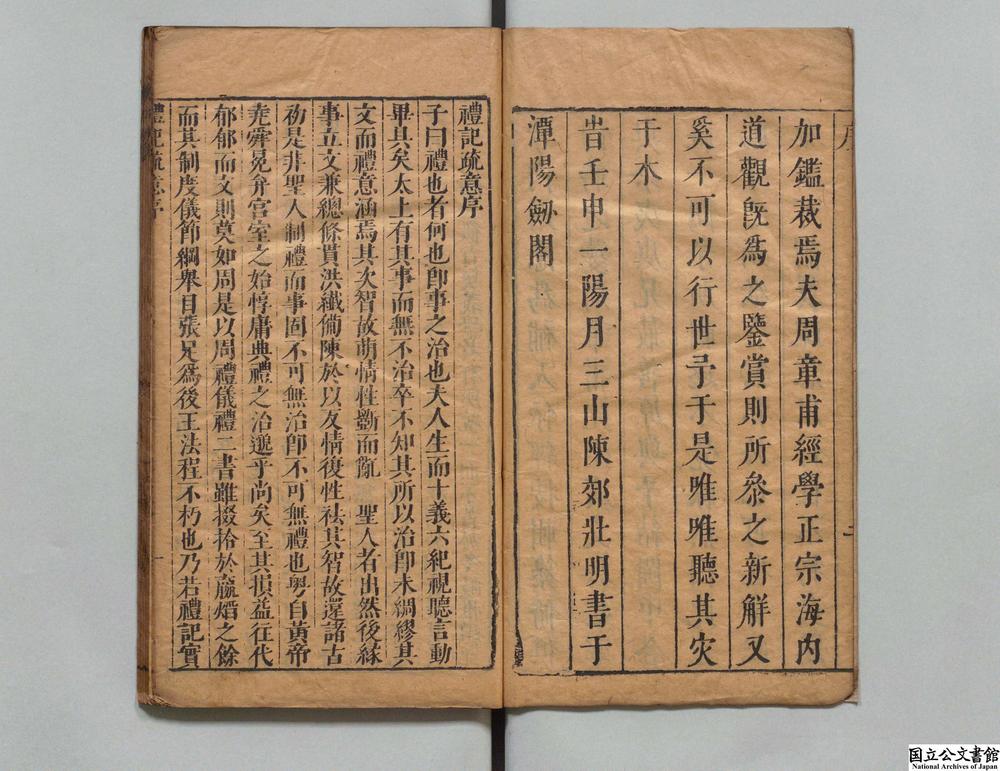 序
加鑑裁焉夫周章甫經學正宗海内
道觀旣爲之鑒賞則所叅之新解又
奚不可以行世予于是唯唯聽其灾
于木
旹壬申一陽月三山陳郊壯明書于
潭陽劔閣
二
禮記疏意序
子曰禮也者何也卽事之治也夫人生而十義六紀視聽言動
畢具矣太上有其事而無不治卒不知其所以治卽未綢繆其
文而禮意涵焉其次智故萌情性斵而亂 聖人者出然後緣
事立文兼總條貫洪纖僃陳於以反情復性祛其智故還諸古
初是非聖人制禮而事固不可無治卽不可無禮也粤自黃帝
堯舜冕弁宮室之始惇庸典禮之治邈乎尚矣至其損益往代
郁郁而文則莫如周是以周禮儀禮二書雖掇拾於嬴熸之餘
而其制度儀節綱舉目張足爲後王法程不朽也乃若禮記實
禮記疏意序
一
国立公文書館
National Archives of Japan